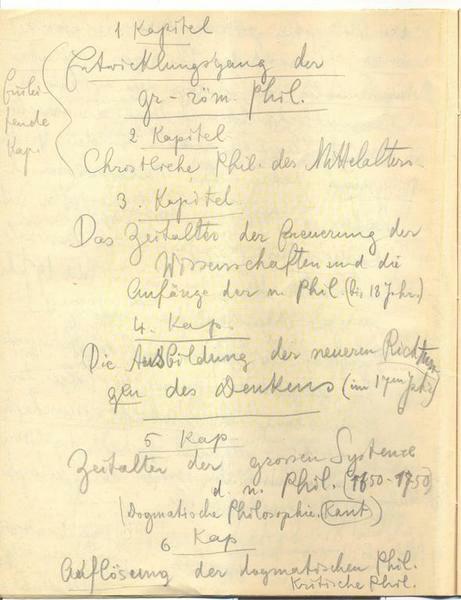 1. Kapitel
Entwicklungsgang der
gr-röm. Phil.
Einlei-
tende
Kap.
2. Kapitel
Christliche Phil. des Mittelalters
3. Kapitel
Das Zeitalter der Erneuerung der
Wissenschaften und die
Anfänge der n. Phil. (bis 18 Jahr.)
4. Kap.
Die Ausbildung der neueren Richtun
gen des Denkens (im 17ten Jahr)
5 Kap
Zeitalter der grossen Systeme
d. n. Phil. (1650-1750)
(Dogmatische Philosophie. Kant)
6 Kap
Auflösung der dogmatischen Phil.
Kritische Phil.